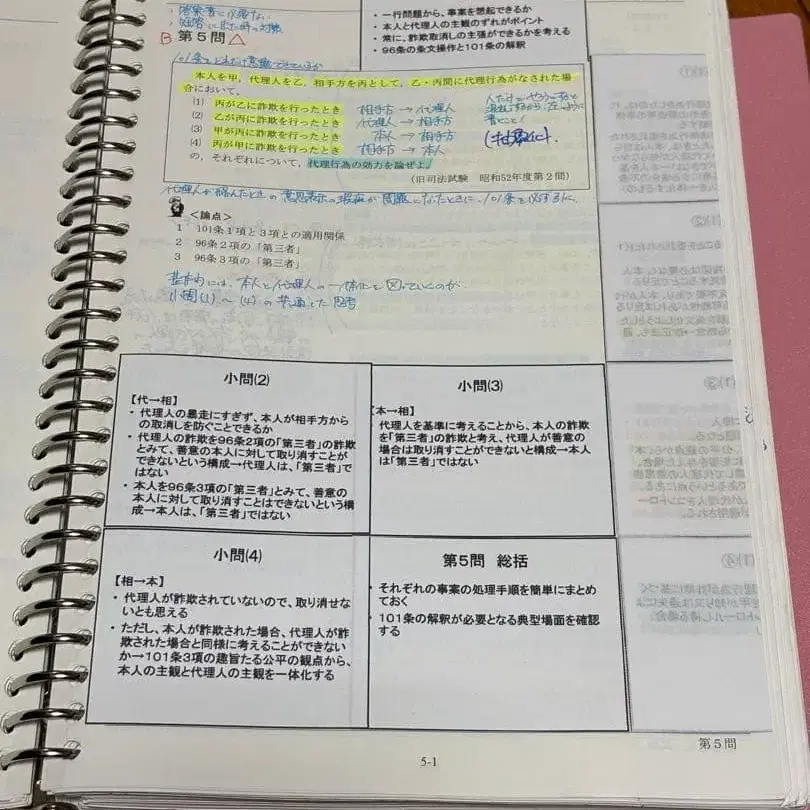 ・答案書に必要ない
・短答に出た時の対策
B 第5問 △
・一行問題から、事案を想起できるか
・本人と代理人の主観のずれがポイント
・常に、詐欺取消しの主張ができるかを考える
・96条の条文操作と101条の解釈
本人を甲,代理人を乙,相手方を丙として,乙・丙間に代理行為がなされた場
合において,
(1) 丙が乙に詐欺を行ったとき 相手方→代理人
(2) 乙が丙に詐欺を行ったとき 代理人→相手方
(3) 甲が丙に詐欺を行ったとき 本人→相手方
(4) 丙が甲に詐欺を行ったとき 相手方→本人
(抽象化).
の,それぞれについて,代理行為の効力を論ぜよ。
(旧司法試験 昭和52年度第2問)
代理人が絡んだときの意思表示の瑕疵が問題になったときに、101条を必ず
<論点>
1 101条1項と3項との適用関係
2 96条2項の「第三者」
3 96条3項の「第三者」
基本的には、本人と代理人の一体化を図っていくのが
小問(1)~(4)の共通した思考
小問(2)
【代→相】
・代理人の暴走にすぎず、本人が相手方から
の取消しを防ぐことできるか
・代理人の詐欺を96条2項の「第三者」の詐欺
とみて、善意の本人に対して取り消すことが
できないという構成→代理人は、「第三者」で
はない
・本人を96条3項の「第三者」とみて、善意の
本人に対して取り消すことはできないという構
成→本人は、「第三者」ではない
小問(3)
【本→相】
代理人を基準に考えることから、本人の詐欺
を「第三者」の詐欺と考え、代理人が善意の
場合は取り消すことができないと構成→本人
は「第三者」ではない
小問(4)
【相→本】
・代理人が詐欺されていないので、取り消せな
いとも思える
・ただし、本人が詐欺された場合、代理人が詐
欺された場合と同様に考えることができない
か→101条3項の趣旨たる公平の観点から、
本人の主観と代理人の主観を一体化する
第5問 総括
・それぞれの事案の処理手順を簡単にまとめ
ておく
・101条の解釈が必要となる典型場面を確認
する
第5問
5-1